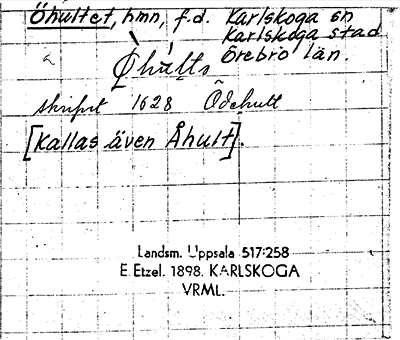 Öhultet, hmn, f.d. Karlskoga sn
Karlskoga stad
Örebro län.
Øhults
skrifvet 1628 Ödehult
[Kallas även Åhult].
Landsm. Uppsala 517:258
E. Etzel. 1898. KARLSKOGA
VRML.